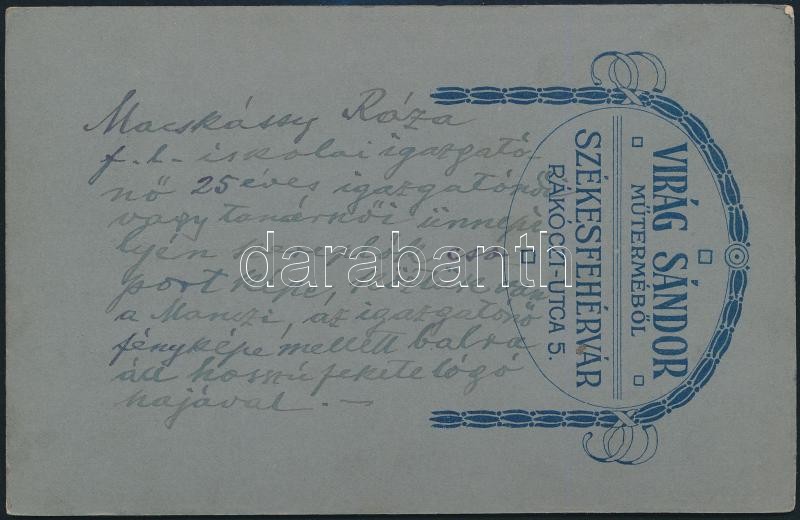 Macskássy Róza
f. l. iskolai igazgató-
nő 25 éves igazgatónői
vagy tanárnői ünnepé-
lyén szereplő cso
port képe,
a Manczi, az igazgatónő
fényképe mellett balra
áll hosszú fekete lógó
hajával. —
darabanth
VIRÁG SÁNDOR
MŰTERMÉBŐL
SZÉKESFEHÉRVÁR
RÁKÓCZI-UTCA 5.